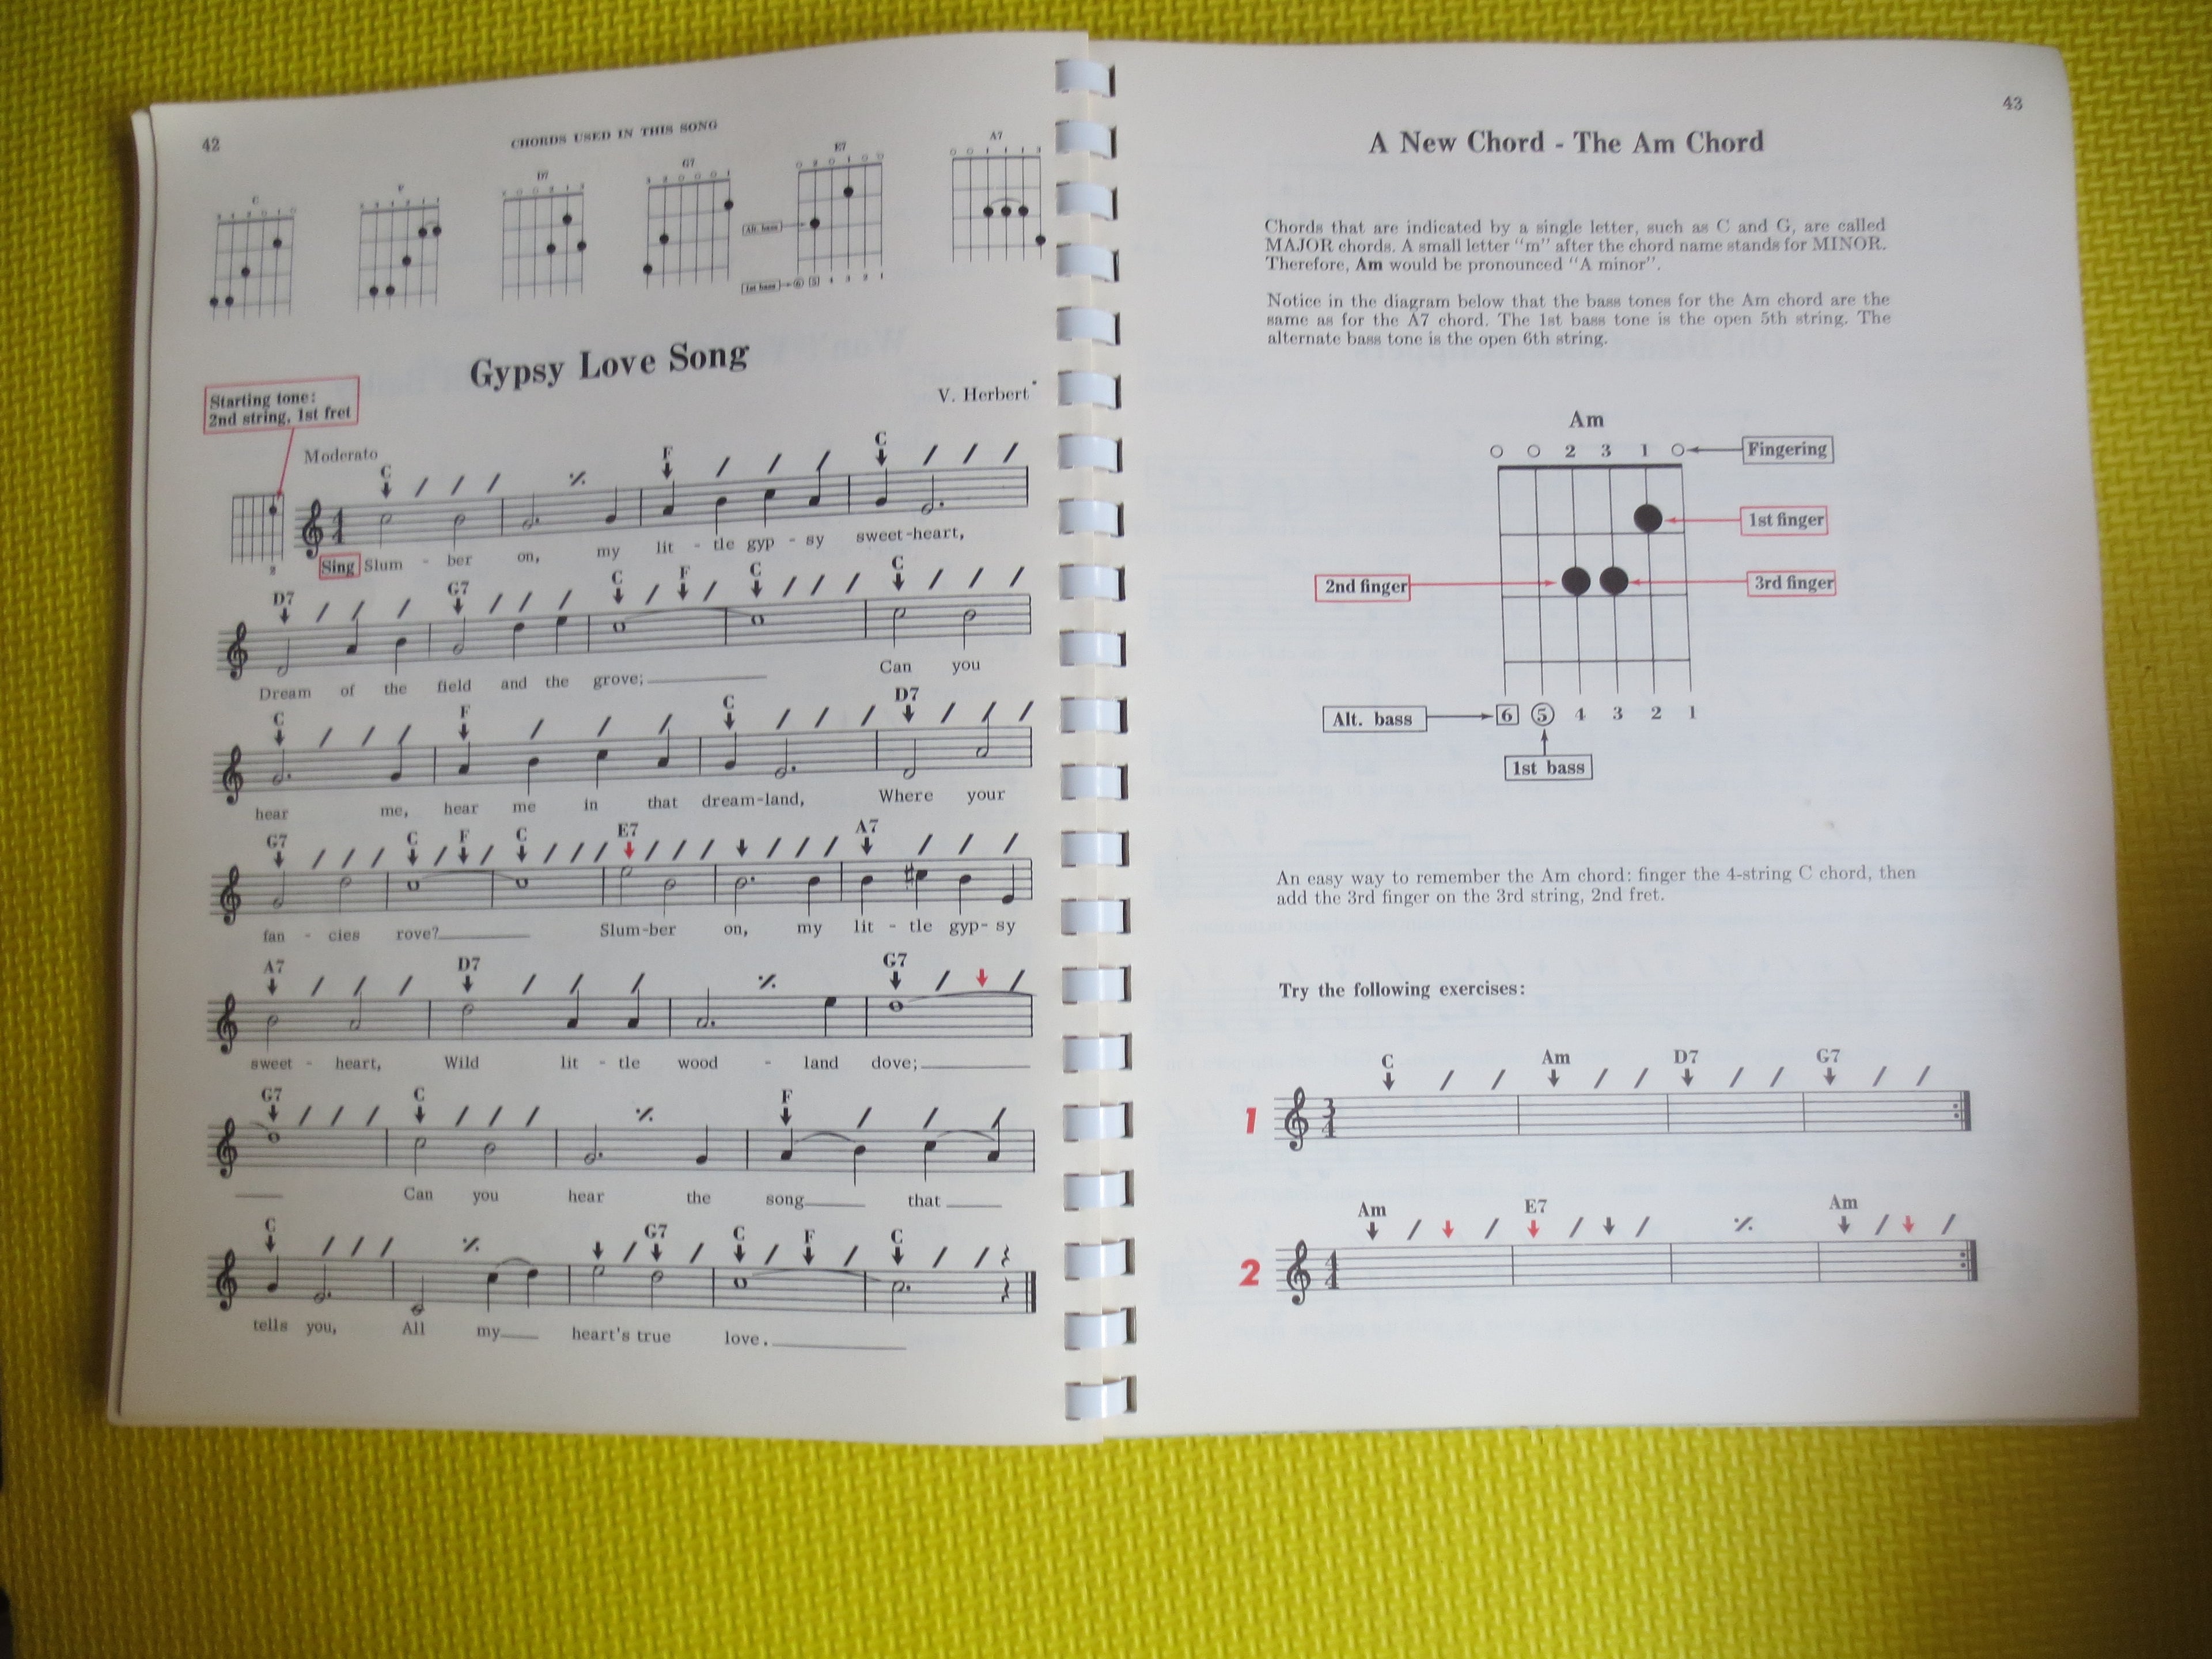 42
CHORDS USED IN THIS SONG
C F D7 G7 E7 A7
Alt. bass
1st bass 6 5 4 3 2 1
Gypsy Love Song
V. Herbert
Starting tone:
2nd string, 1st fret
Moderato
C F C
Sing Slum - ber on, my lit - tle gyp - sy sweet-heart,
D7 G7 C F C C
Dream of the field and the grove; Can you
C F C D7
hear me, hear me in that dream-land, Where your
G7 C F C E7 A7
fan - cies rove? Slum-ber on, my lit - tle gyp- sy
A7 D7 G7
sweet - heart, Wild lit - tle wood - land dove;
G7 C F
Can you hear the song that
C G7 C F C
tells you, All my heart's true love.
43
A New Chord - The Am Chord
Chords that are indicated by a single letter, such as C and G, are called
MAJOR chords. A small letter "m" after the chord name stands for MINOR.
Therefore, Am would be pronounced "A minor".
Notice in the diagram below that the bass tones for the Am chord are the
same as for the A7 chord. The 1st bass tone is the open 5th string. The
alternate bass tone is the open 6th string.
Am
2 3 1 Fingering
1st finger
2nd finger 3rd finger
Alt. bass 6 5 4 3 2 1
1st bass
An easy way to remember the Am chord: finger the 4-string C chord, then
add the 3rd finger on the 3rd string, 2nd fret.
Try the following exercises:
C Am D7 G7
1 3 4
Am E7 Am
2 4 4